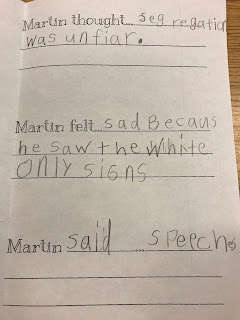 Martin thought... segregation
was unfiar.
Martin felt... sad Becaus
he saw the Whihte
ONly signs
Martin said ...speeches